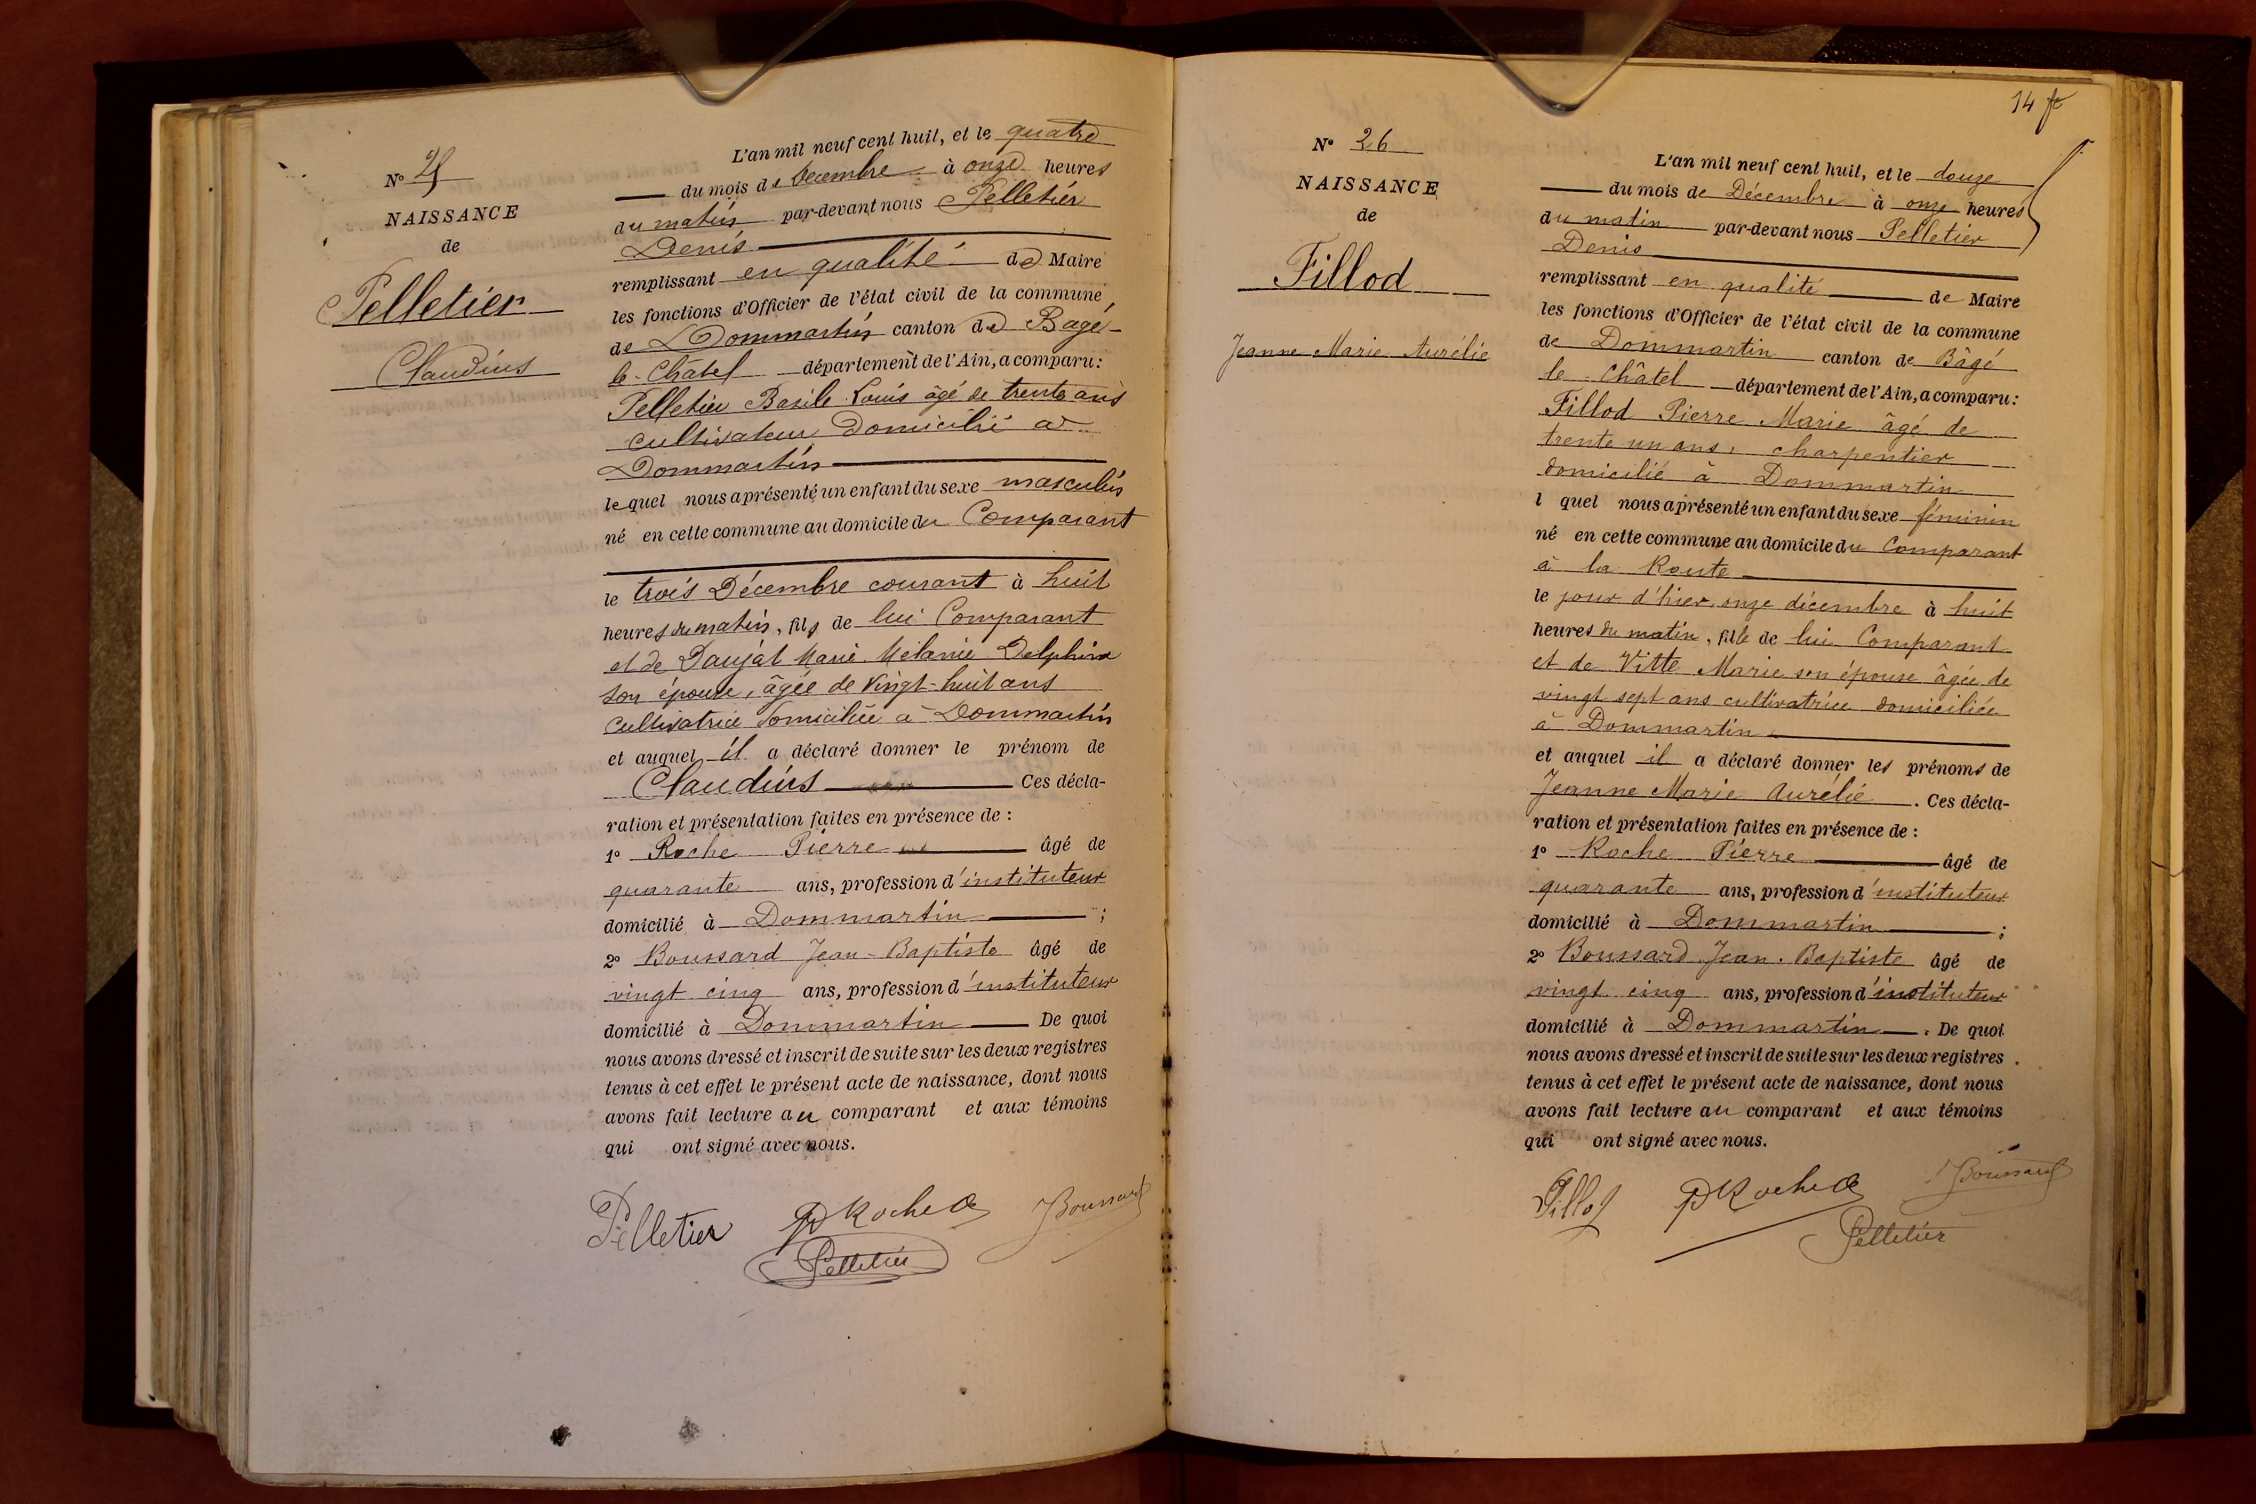 N° 25
NAISSANCE
de
Pelletier
Claudius
L'an mil neuf cent huit, et le quatre
du mois de Décembre à onze heures
du matin par-devant nous Pelletier
Denis
remplissant en qualité de Maire
les fonctions d'Officier de l'état civil de la commune
de Dommartin canton de Bagé-
le-Châtel département de l'Ain, a comparu :
Pelletier Basile Louis âgé de trente ans
cultivateur domicilié à
Dommartin
lequel nous a présenté un enfant du sexe masculin
né en cette commune au domicile du Comparant
le trois Décembre courant à huit
heures du matin, fils de lui Comparant
et de Daujat Marie Mélanie Delphine
son épouse, âgée de vingt-huit ans
cultivatrice domiciliée à Dommartin
et auquel il a déclaré donner le prénom de
Claudius Ces décla-
ration et présentation faites en présence de :
1° Roche Pierre âgé de
quarante ans, profession d'instituteur
domicilié à Dommartin ;
2° Boussard Jean-Baptiste âgé de
vingt cinq ans, profession d'instituteur
domicilié à Dommartin De quoi
nous avons dressé et inscrit de suite sur les deux registres
tenus à cet effet le présent acte de naissance, dont nous
avons fait lecture au comparant et aux témoins
qui ont signé avec nous.
Pelletier P Roche J Boussard
Pelletier
14
N° 26
NAISSANCE
de
Fillod
Jeanne Marie Aurélie
L'an mil neuf cent huit, et le douze
du mois de Décembre à onze heures
du matin par-devant nous Pelletier
Denis
remplissant en qualité de Maire
les fonctions d'Officier de l'état civil de la commune
de Dommartin canton de Bâgé
le Châtel département de l'Ain, a comparu :
Fillod Pierre Marie âgé de
trente un ans, charpentier
domicilié à Dommartin
l quel nous a présenté un enfant du sexe féminin
né en cette commune au domicile du Comparant
à la Route
le jour d'hier onze décembre à huit
heures du matin, fille de lui Comparant
et de Vitte Marie son épouse âgée de
vingt sept ans cultivatrice domiciliée
à Dommartin
et auquel il a déclaré donner les prénoms de
Jeanne Marie Aurélie . Ces décla-
ration et présentation faites en présence de :
1° Roche Pierre âgé de
quarante ans, profession d'instituteur
domicilié à Dommartin ;
2° Boussard Jean-Baptiste âgé de
vingt cinq ans, profession d'instituteur
domicilié à Dommartin . De quoi
nous avons dressé et inscrit de suite sur les deux registres
tenus à cet effet le présent acte de naissance, dont nous
avons fait lecture au comparant et aux témoins
qui ont signé avec nous.
Fillod P Roche J Boussard
Pelletier